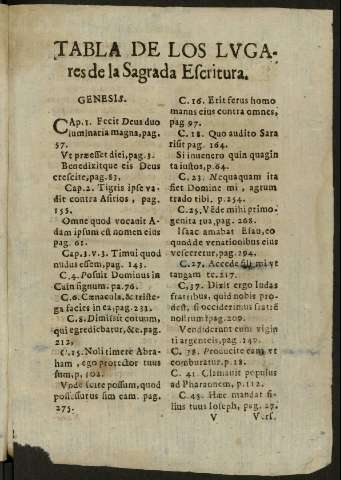 TABLA DE LOS LVGA-
res de la Sagrada Escritura.
GENESIS.
CAp.1. Fecit Deus duo
luminaria magna, pag.
57.
Vt præesset diei, pag.3.
Benedixitque eis Deus
crescite, pag.83.
Cap.2. Tigris ipse va-
dit contra Asirios, pag.
155.
Omne quod vocauit A-
dam ipsum est nomen eius
pag. 61.
Cap.3. v.3. Timui quod
nudus essem, pag. 143.
C.4. Posuit Dominus in
Cain signum. pa.76.
C.6. Cœnacula, & triste-
ga facies in ea; pag.231.
C.8. Dimisit coruum,
qui egrediebatur, &c. pag.
212,
C.15. Noli timere Abra-
ham, ego protector tuus
sum, p, 102.
Vnde scire possum, quod
possessurus sim eam. pag.
275.
C. 16. Erit ferus homo
manus eius contra omnes,
pag 97.
C. 18. Quo audito Sara
risit pag. 164.
Si inuenero quin quagin
ta iustos, p.64.
C. 23. Nequaquam ita
fiet Domine mi, agrum
trado tibi. p.254.
C.25. Vēde mihi primo-
genita tua, pag. 268.
Isaac amabat Esau, eo
quod de venationibus eius
vesceretur, pag. 194.
C.27. Accede fili mi vt
tangam te. 217.
C.37. Dixit ergo Iudas
fratribus, quid nobis pro-
dest, si occiderimus fratrē
nostrum? pag. 209.
Vendiderunt eum vigin
ti argenteis, pag. 140.
C. 38. Producite eam vt
comburatur. p.18.
C. 41. Clamauit populus
ad Pharaonem, p.112.
C. 45. Hæc mandat fi-
lius tuus Ioseph, pag. 27.
V V.rs.